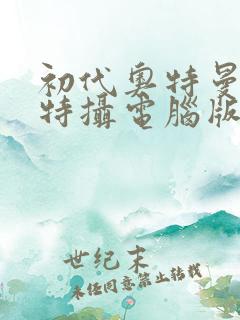 初代奧特曼
特攝電腦版
世纪末
未经同意禁止转载